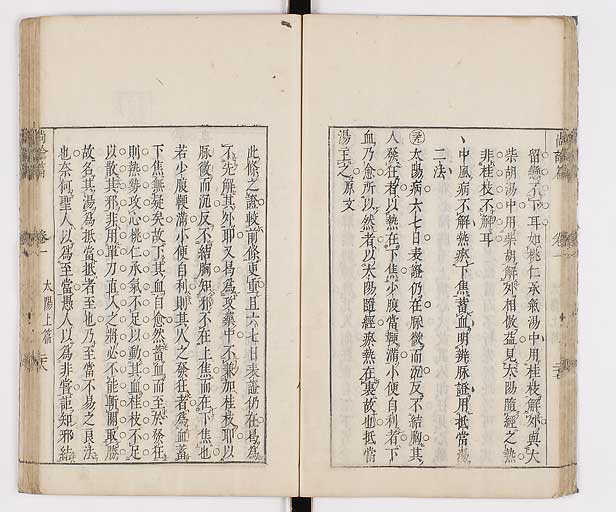 留戀不下耳如桃仁承氣湯中用桂枝解外與大
柴胡湯中用柴胡解外相倣益見太陽隨經之熱
非桂枝不解耳
中風病不解熱瘀下焦蓄血明辨脉證用抵當湯
二法
太陽病六七日表證仍在脉微而沉反不結胸其
人發狂者以熱在下焦少腹當鞕滿小便自利者下
血乃愈所以然者以太陽隨經瘀熱在裏故也抵當
湯主之原文
此條之證較前條更重且六七日表證仍在曷爲
不先解其外耶又曷爲攻藥中不兼加桂枝耶以
脉微而沉反不結胸知邪不在上焦而在下焦也
若少腹鞕滿小便自利則其人之發狂者爲血蓄
下焦無疑矣故下其血自愈然蓄血而至於發狂
則熱勢攻心桃仁承氣不足以動其血桂枝不足
以散其邪非用單刀直入之將必不能斬關取勝
故名其湯爲抵當抵者至也乃至當不易之良法
也奈何聖人以爲至當愚人以爲非當詎知邪結
尚論篇
卷一
太陽上篇